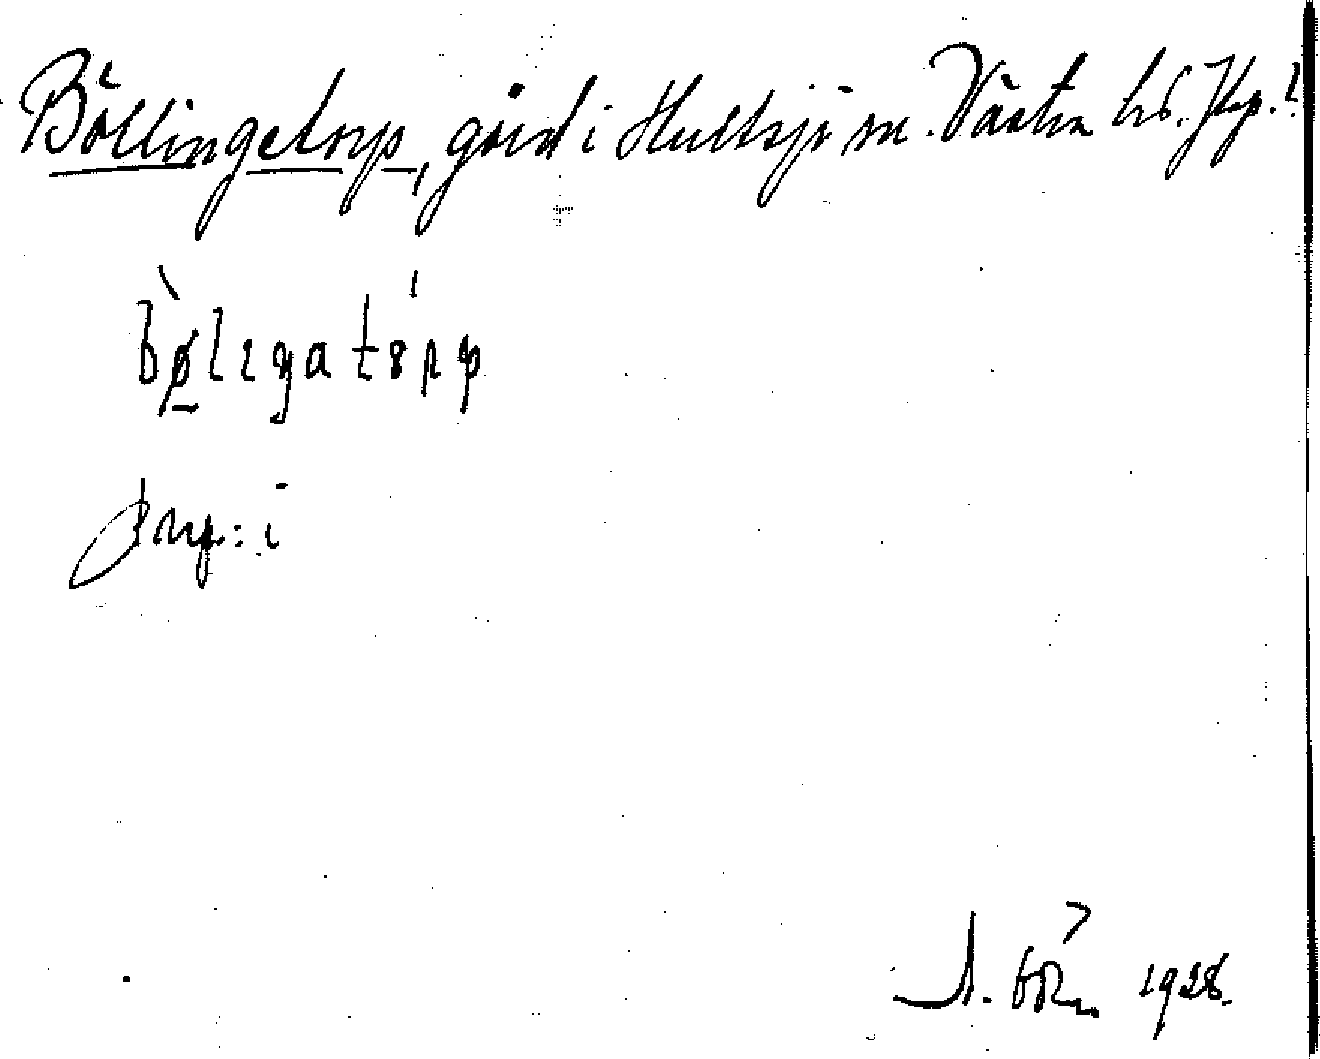 Böllingetorp, gård i Hultsjö sn. Västra hd. Jkp. l.
bø̀lıŋatórp
prep: i
1928.